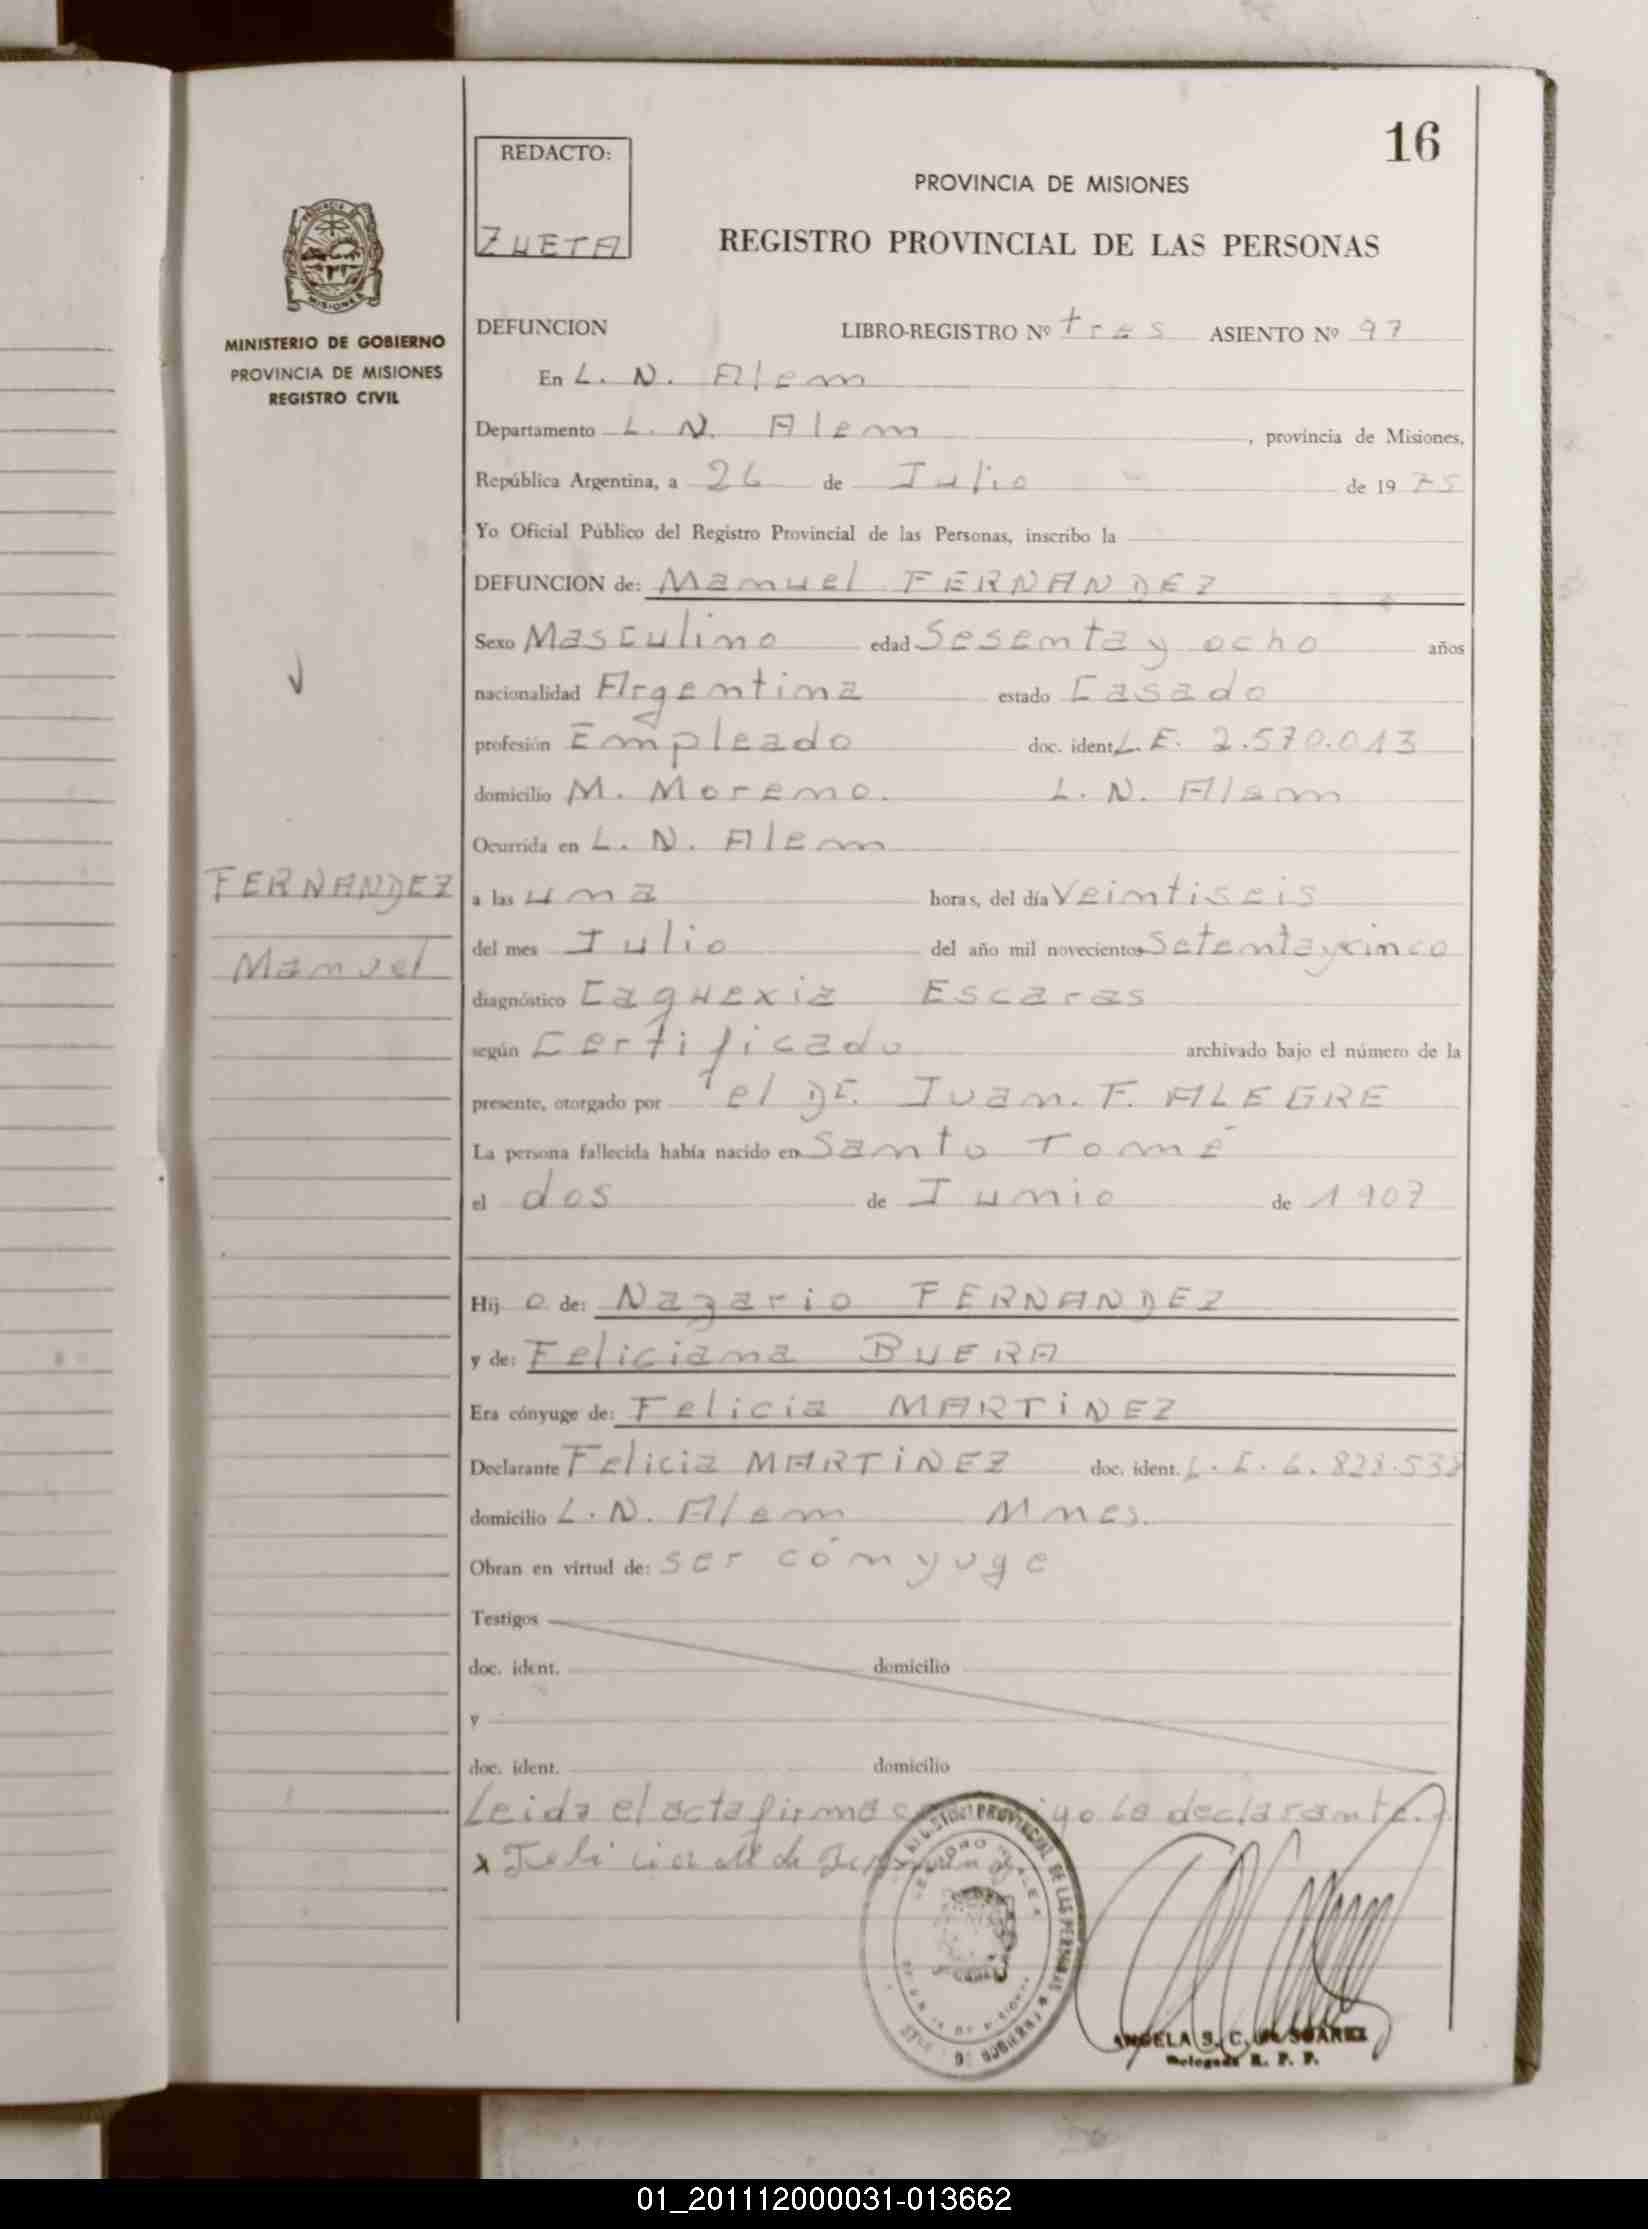 16
REDACTO:
ZUETA
PROVINCIA DE MISIONES
REGISTRO PROVINCIAL DE LAS PERSONAS
MINISTERIO DE GOBIERNO
PROVINCIA DE MISIONES
REGISTRO CIVIL
DEFUNCION LIBRO-REGISTRO Nº tres ASIENTO Nº 97
En L. N. Alem
Departamento L. N. Alem, provincia de Misiones,
República Argentina, a 26 de Julio de 1975
Yo Oficial Público del Registro Provincial de las Personas, inscribo la
DEFUNCION de: Manuel FERNANDEZ
Sexo Masculino edad Sesenta y ocho años
nacionalidad Argentina estado Casado
profesión Empleado doc. ident. L. E. 2.570.013
domicilio M. Moreno. L. N. Alem
Ocurrida en L. N. Alem
FERNANDEZ
Manuel
a las una horas, del día Veintiseis
del mes Julio del año mil novecientos Setentaycinco
diagnóstico Caquexia Escaras
según Certificado archivado bajo el número de la
presente, otorgado por el Dr. Juan. F. ALEGRE
La persona fallecida había nacido en Santo Tomé
el dos de Junio de 1907
Hij o de: Nazario FERNANDEZ
y de: Feliciana BUERA
Era cónyuge de: Felicia MARTINEZ
Declarante Felicia MARTINEZ doc. ident. 6.828.538
domicilio L. N. Alem Mnes.
Obran en virtud de: ser cónyuge
Testigos
doc. ident. domicilio
y
doc. ident. domicilio
Leida el acta firma la declarante.
x Felicia M de
REGISTRO PROVINCIAL DE LAS PERSONAS
ANGELA S. C. de SUAREZ
Delegada R. P. P.
01_201112000031-013662